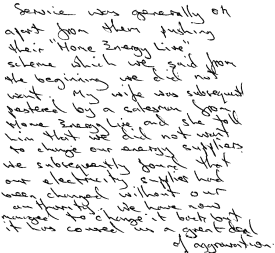 Service was generally ok
apart from them pushing
their "Home Energy Line"
scheme which we said from
the beginning we did not
want. My wife was subsequent
pestered by a salesman from
Home Energy Line and she told
him that we did not want
to change our energy suppliers.
We subsequently found that
our electricity supplier had
been changed without our
authority. We have now
managed to change it back but
it has caused us a great deal
of aggravation.